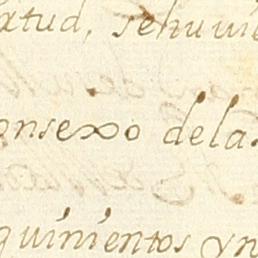 xtud, sehuvie
onsexo dela
quinientos yn